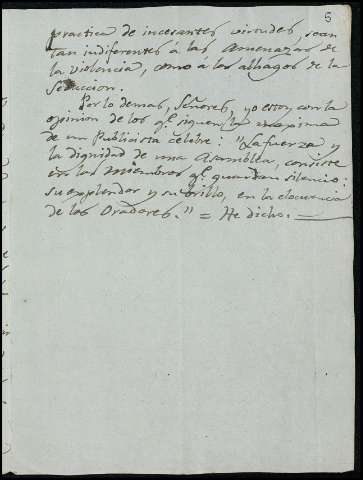 5
practica de incesantes virtudes, sean
tan indiferentes á las amenazas de
la violencia, como á los alhagos de la
seduccion.
Por lo demas, Señores, yo estoy con la
opinion de los q.e siguen la maxima
de un Publicista celebre: "La fuerza y
la dignidad de una Asamblea, consiste
en los miembros q.e guardan silencio:
su explendor y su brillo, en la elocuencia
de los Oradores." = He dicho. —